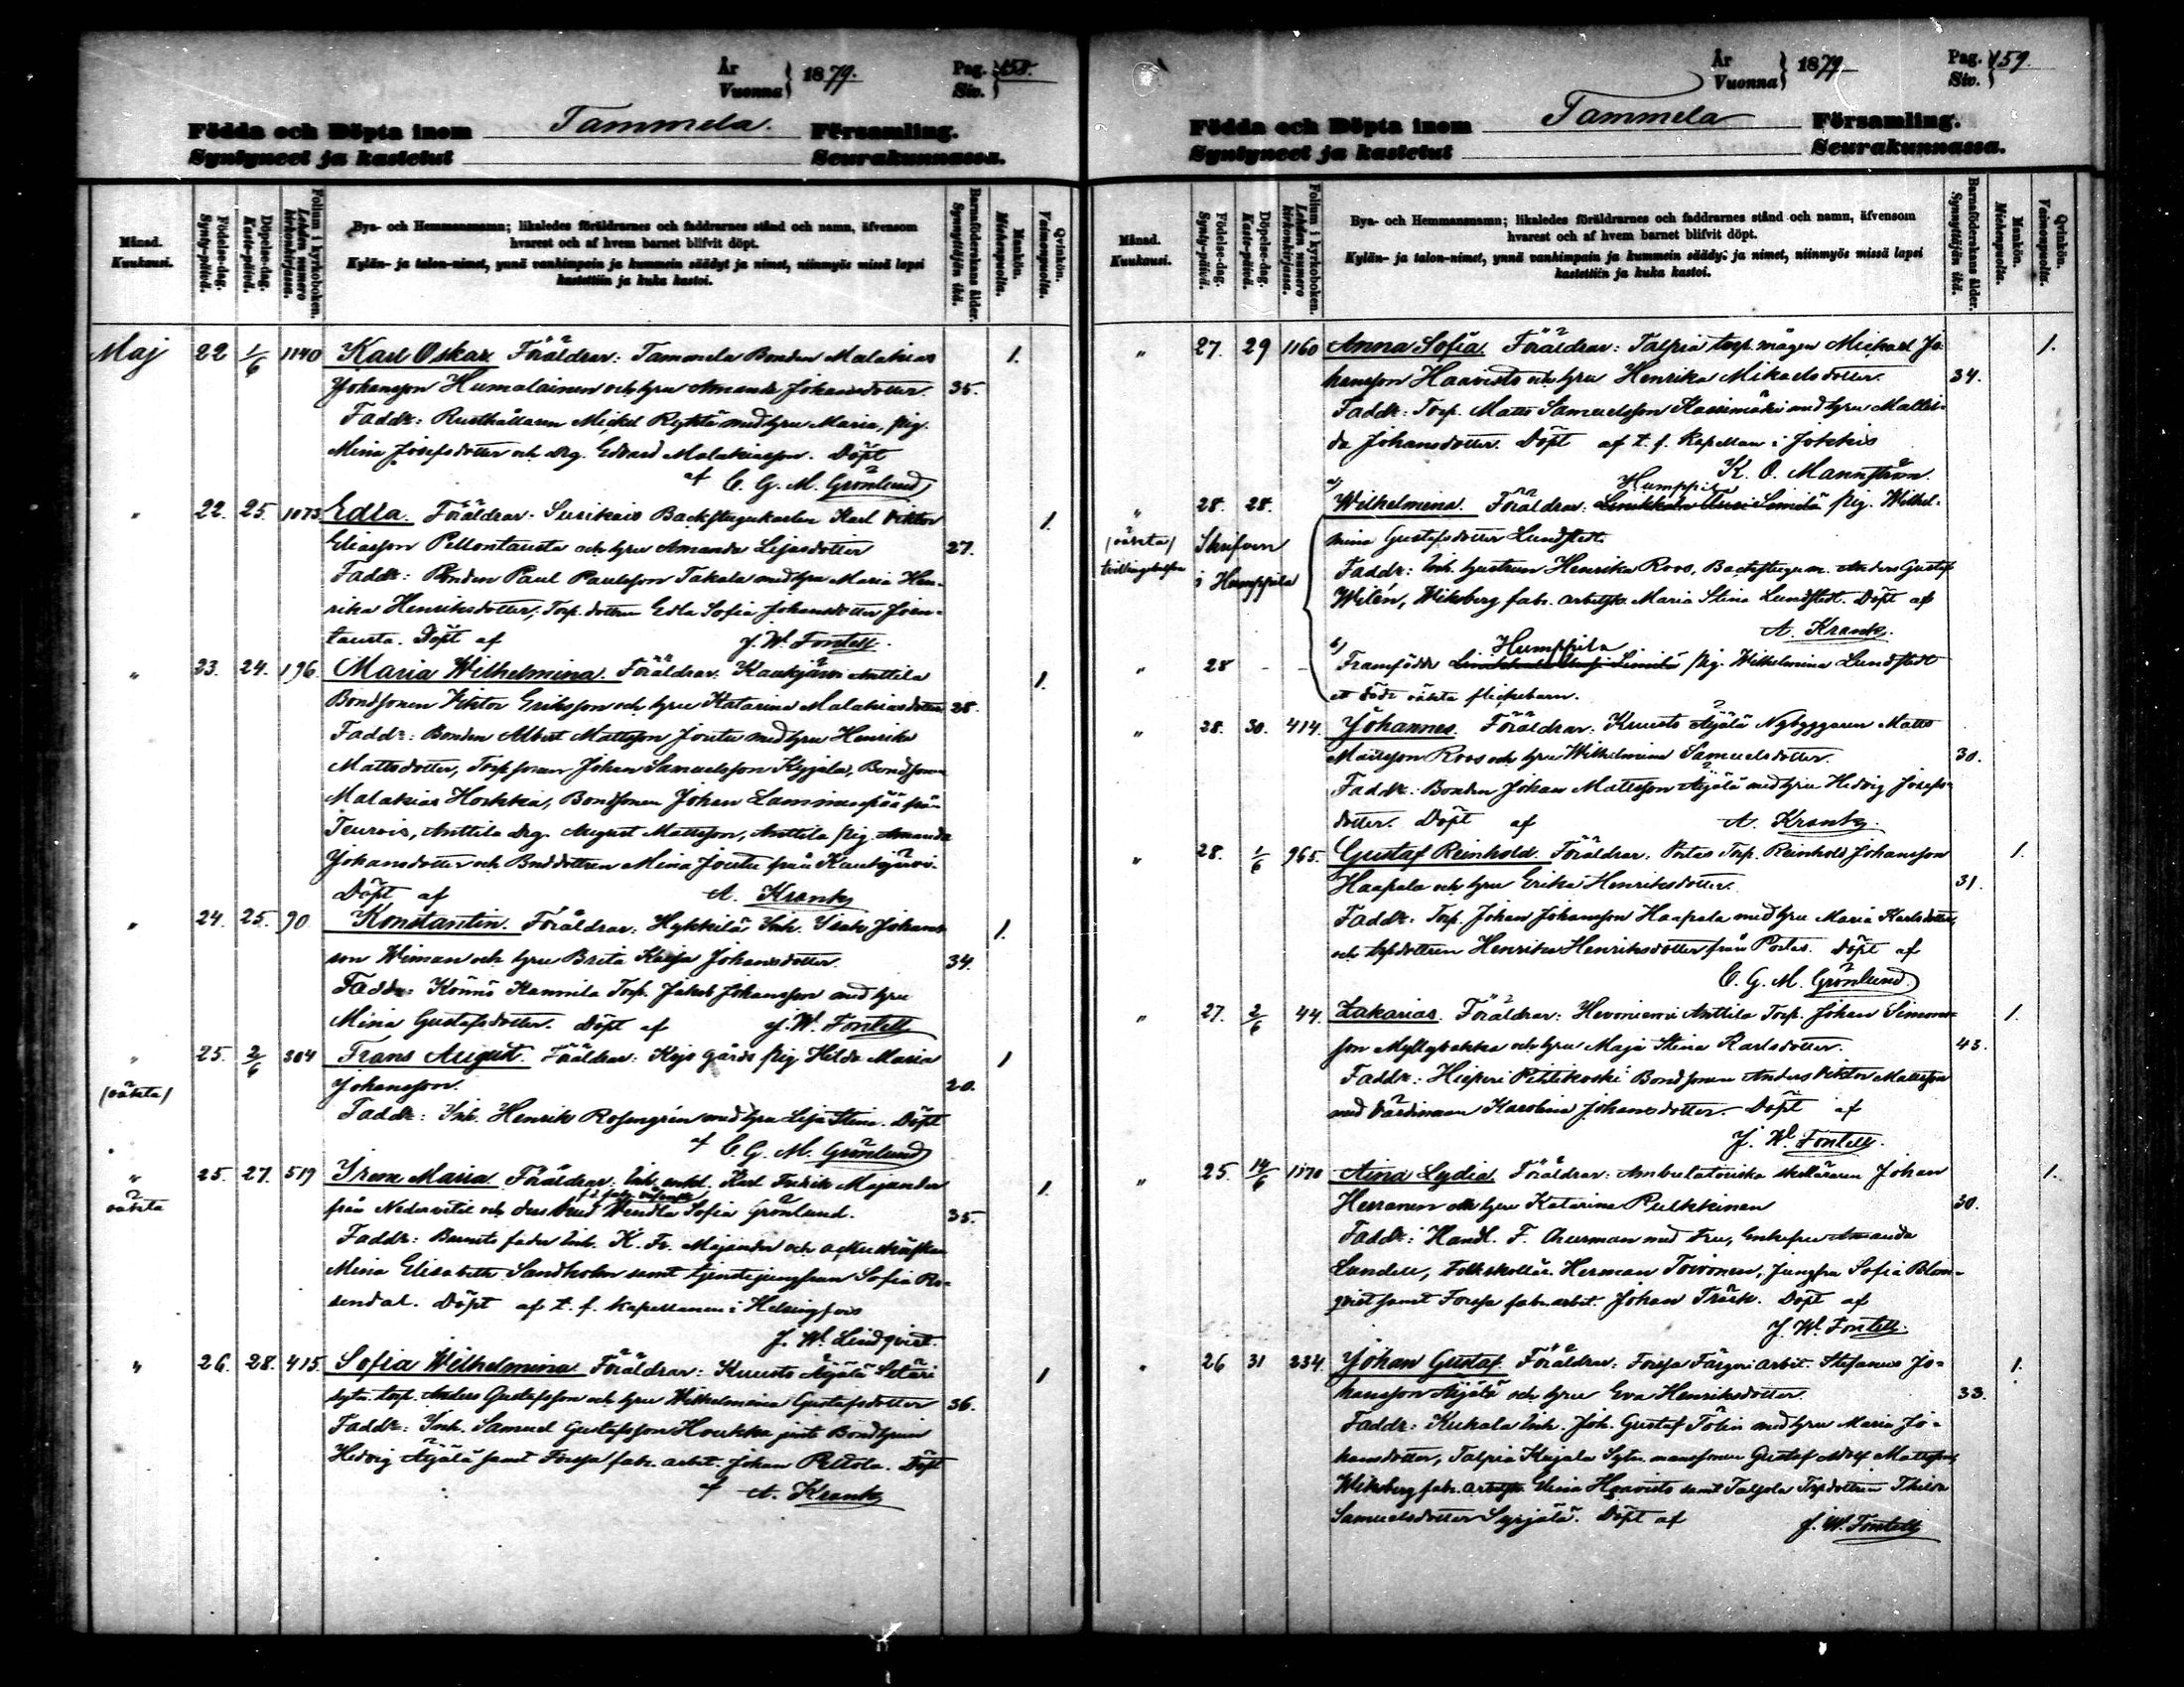 År
Vuonna } 1879.
Pag.
Siv. } 158.
Födda och Döpta inom Tammela. Församling.
Syntyneet ja kastetut Seurakunnassa.
Månad.
Kuukausi.
Födelse-dag.
Synty-päivä.
Döpelse-dag.
Kaste-päivä.
Folium i kyrkoboken.
Lehden numero kirkonkirjassa.
Bya- och Hemmansnamn; likaledes föräldrarnes och faddrarnes stånd och namn, äfvensom
hvarest och af hvem barnet blifvit döpt.
Kylän- ja talon-nimet, ynnä vanhimpain ja kummein säädyt ja nimet, niinmyös missä lapsi
kastettiin ja kuka kastoi.
Barnaföderskans ålder.
Synnyttäjän ikä.
Mankön.
Miehenpuolia.
Qvinkön.
Vaimonpuolia.
Maj 22 1/6 1140 Karl Oskar Föräldrar: Tammela Bonden Malakias 1.
Johansson Humalainen och hru Amanda Johansdotter. 35.
Faddr: Rusthållaren Mickel med hru Maria, pig.
Mina Josefsdotter och drg. Edvard Malakiasson. Döpt
af C. G. M. Grönlund
" 22. 25. 1073 Edla. Föräldrar: Surikais Backstugukarlen Karl Viktor 1.
Eliasson Pellontausta och hru Amanda Lejasdotter 27.
Faddr: Bonden Paul Paulsson Takala med hru Maria Hen-
rika Henriksdotter, Torp. dottren Edla Sofia Johansdotter Joen-
tausta. Döpt af J. W. Fontell.
" 23. 24. 196. Maria Wilhelmina. Föräldrar: Kaukjärvi Anttila 1.
Bondsonen Viktor Eriksson och hru Katarina Malakiasdotter 28.
Faddr: Bonden Albert Mattsson Joutu med hru Henrika
Mattsdotter, Torp. sonen Johan Samuelsson Kyjälä, Bondsonen
Malakias Horkka, Bondsonen Johan Lamminpää från
Teurois, Anttila drg. August Mattsson, Anttila pig. Amanda
Johansdotter och Bnddottren Mina Joutu från Kaukjärvi.
Döpt af A. Krank
" 24. 25. 90 Konstantin. Föräldrar: Hykkilä Inh. Isak Johans- 1.
son Wiman och hru Brita Kajsa Johansdotter. 34.
Faddr: Könnö Torp. Jakob Johansson med hru
Mina Gustafsdotter. Döpt af J. W. Fontell
" 25. 2/6 304 Frans August. Föräldrar: Kojo gårds pig Hilda Maria 1
(oäkta) Johansson. 20.
Faddr: Inh. Henrik Rosengrén med hru Lisa Stina. Döpt
af C. G. M. Grönlund
" 25. 27. 519 Irene Maria Föräldrar: Inh. enkl. Karl Fredrik Majander 1.
oäkta från Nedervetil och dess brud Wendla Sofia Grönlund. 35.
Faddr: Barnets fader Inh. K. Fr. Majander och
Mina Elisabeth Sandholm samt tjenstejungfrun Sofia Ro-
sendal. Döpt af t. f. kapellanen i Helsingfors
J. W. Lindqvist.
" 26. 28. 415. Sofia Wilhelmina Föräldrar: Kuusto Äijälä 1
sytn. torp. Anders Gustafsson och hru Wilhelmina Gustafsdotter 36.
Faddr: Inh. Samuel Gustafsson Hourkka jemte Bondhrun
Hedvig Äijälä samt Forssa fabr. arbet. Johan Peltola. Döpt
af A. Krank
År
Vuonna } 1879
Pag.
Siv. } 159.
Födda och Döpta inom Tammela Församling.
Syntyneet ja kastetut Seurakunnassa.
Månad.
Kuukausi.
Födelse-dag.
Synty-päivä.
Döpelse-dag.
Kaste-päivä.
Folium i kyrkoboken.
Lehden numero kirkonkirjassa.
Bya- och Hemmansnamn; likaledes föräldrarnes och faddrarnes stånd och namn, äfvensom
hvarest och af hvem barnet blifvit döpt.
Kylän- ja talon-nimet, ynnä vanhimpain ja kummein säädyt ja nimet, niinmyös missä lapsi
kastettiin ja kuka kastoi.
Barnaföderskans ålder.
Synnyttäjän ikä.
Mankön.
Miehenpuolia.
Qvinkön.
Vaimonpuolia.
" 27. 29 1160 Anna Sofia. Föräldrar: Talpia torp. mågen Mickael Jo- 1.
hansson Haavisto och hru Henrika Mikaelsdotter. 34.
Faddr: Torp. Matts Samuelsson med hru Matil-
da Johansdotter. Döpt af t. f. Kapellan i Jokkis
K. O. Mannström.
Humppila
" 28. 28. a) Wilhelmina. Föräldrar: pig. Wilhel-
(oäkta) Skrifven mina Gustafsdotter Lundstedt.
tvillingbarn i Humppila Faddr: Inh. hustrun Henrika Roos, Backstugum. Anders Gustaf
Wilén, Wiksberg fabr. arbetsk. Maria Stina Lundstedt. Döpt af
A. Krank.
Humppila
" 28 - - b) Framfödde pig. Wilhelmina Lundstedt
ett dödt oäkta flickebarn.
" 28. 30. 414. Johannes. Föräldrar: Kuusto Äijälä Nybyggaren Matts
Mattsson Roos och hru Wilhelmina Samuelsdotter. 30.
Faddr: Bonden Johan Mattsson Äijälä med hru Hedvig Josefs-
dotter. Döpt af A. Krank.
" 28. 1/6 965. Gustaf Reinhold. Föräldrar: Portas Torp. Reinhold Johansson 1.
Haapala och hru Erika Henriksdotter. 31.
Faddr: Torp. Johan Johansson Haapala med hru Maria Karlsdotter,
och trpdottren Henrika Henriksdotter från Portas. Döpt af
C. G. M. Grönlund.
" 27. 2/6 44. Zakarias. Föräldrar: Hevoniemi Anttila Torp. Johan Simons- 1.
son Myllynkakka och hru Maja Stina Karlsdotter. 43.
Faddr: Hieperi Pihlikoski Bondsonen Anders Viktor Mattsson
med värdinnan Karolina Johansdotter. Döpt af
J. W. Fontell.
" 25. 14/6 1170 Aina Lydia. Föräldrar: Ambulatoriska skolläraren Johan 1.
Herranen och hru Katarina Pulkkinen 30.
Faddr: Handl. F. Åkerman med Fru, Enkefru Amanda
Lundell, Folkskollär. Herman Toivonen, Jungfru Sofia Blom-
qvist samt Forssa fabr. arbet. Johan Träsk. Döpt af
J. W. Fontell.
" 26 31 234. Johan Gustaf. Föräldrar: Forssa Färgeri arbet. Stefanus Jo- 1.
hansson Äijälä och hru Eva Henriksdotter. 33.
Faddr: Kuhala Inh. Joh. Gustaf Tölin med hru Maria Jo-
hansdotter, Talpia Kujala Sytn. manssonen Gustaf Adolf Mattsson,
Wiksberg fabr. arbetsk. Elina Haavisto samt Taljala Torpdottren Thilda
Samuelsdotter Syrjälä. Döpt af J. W. Fontell